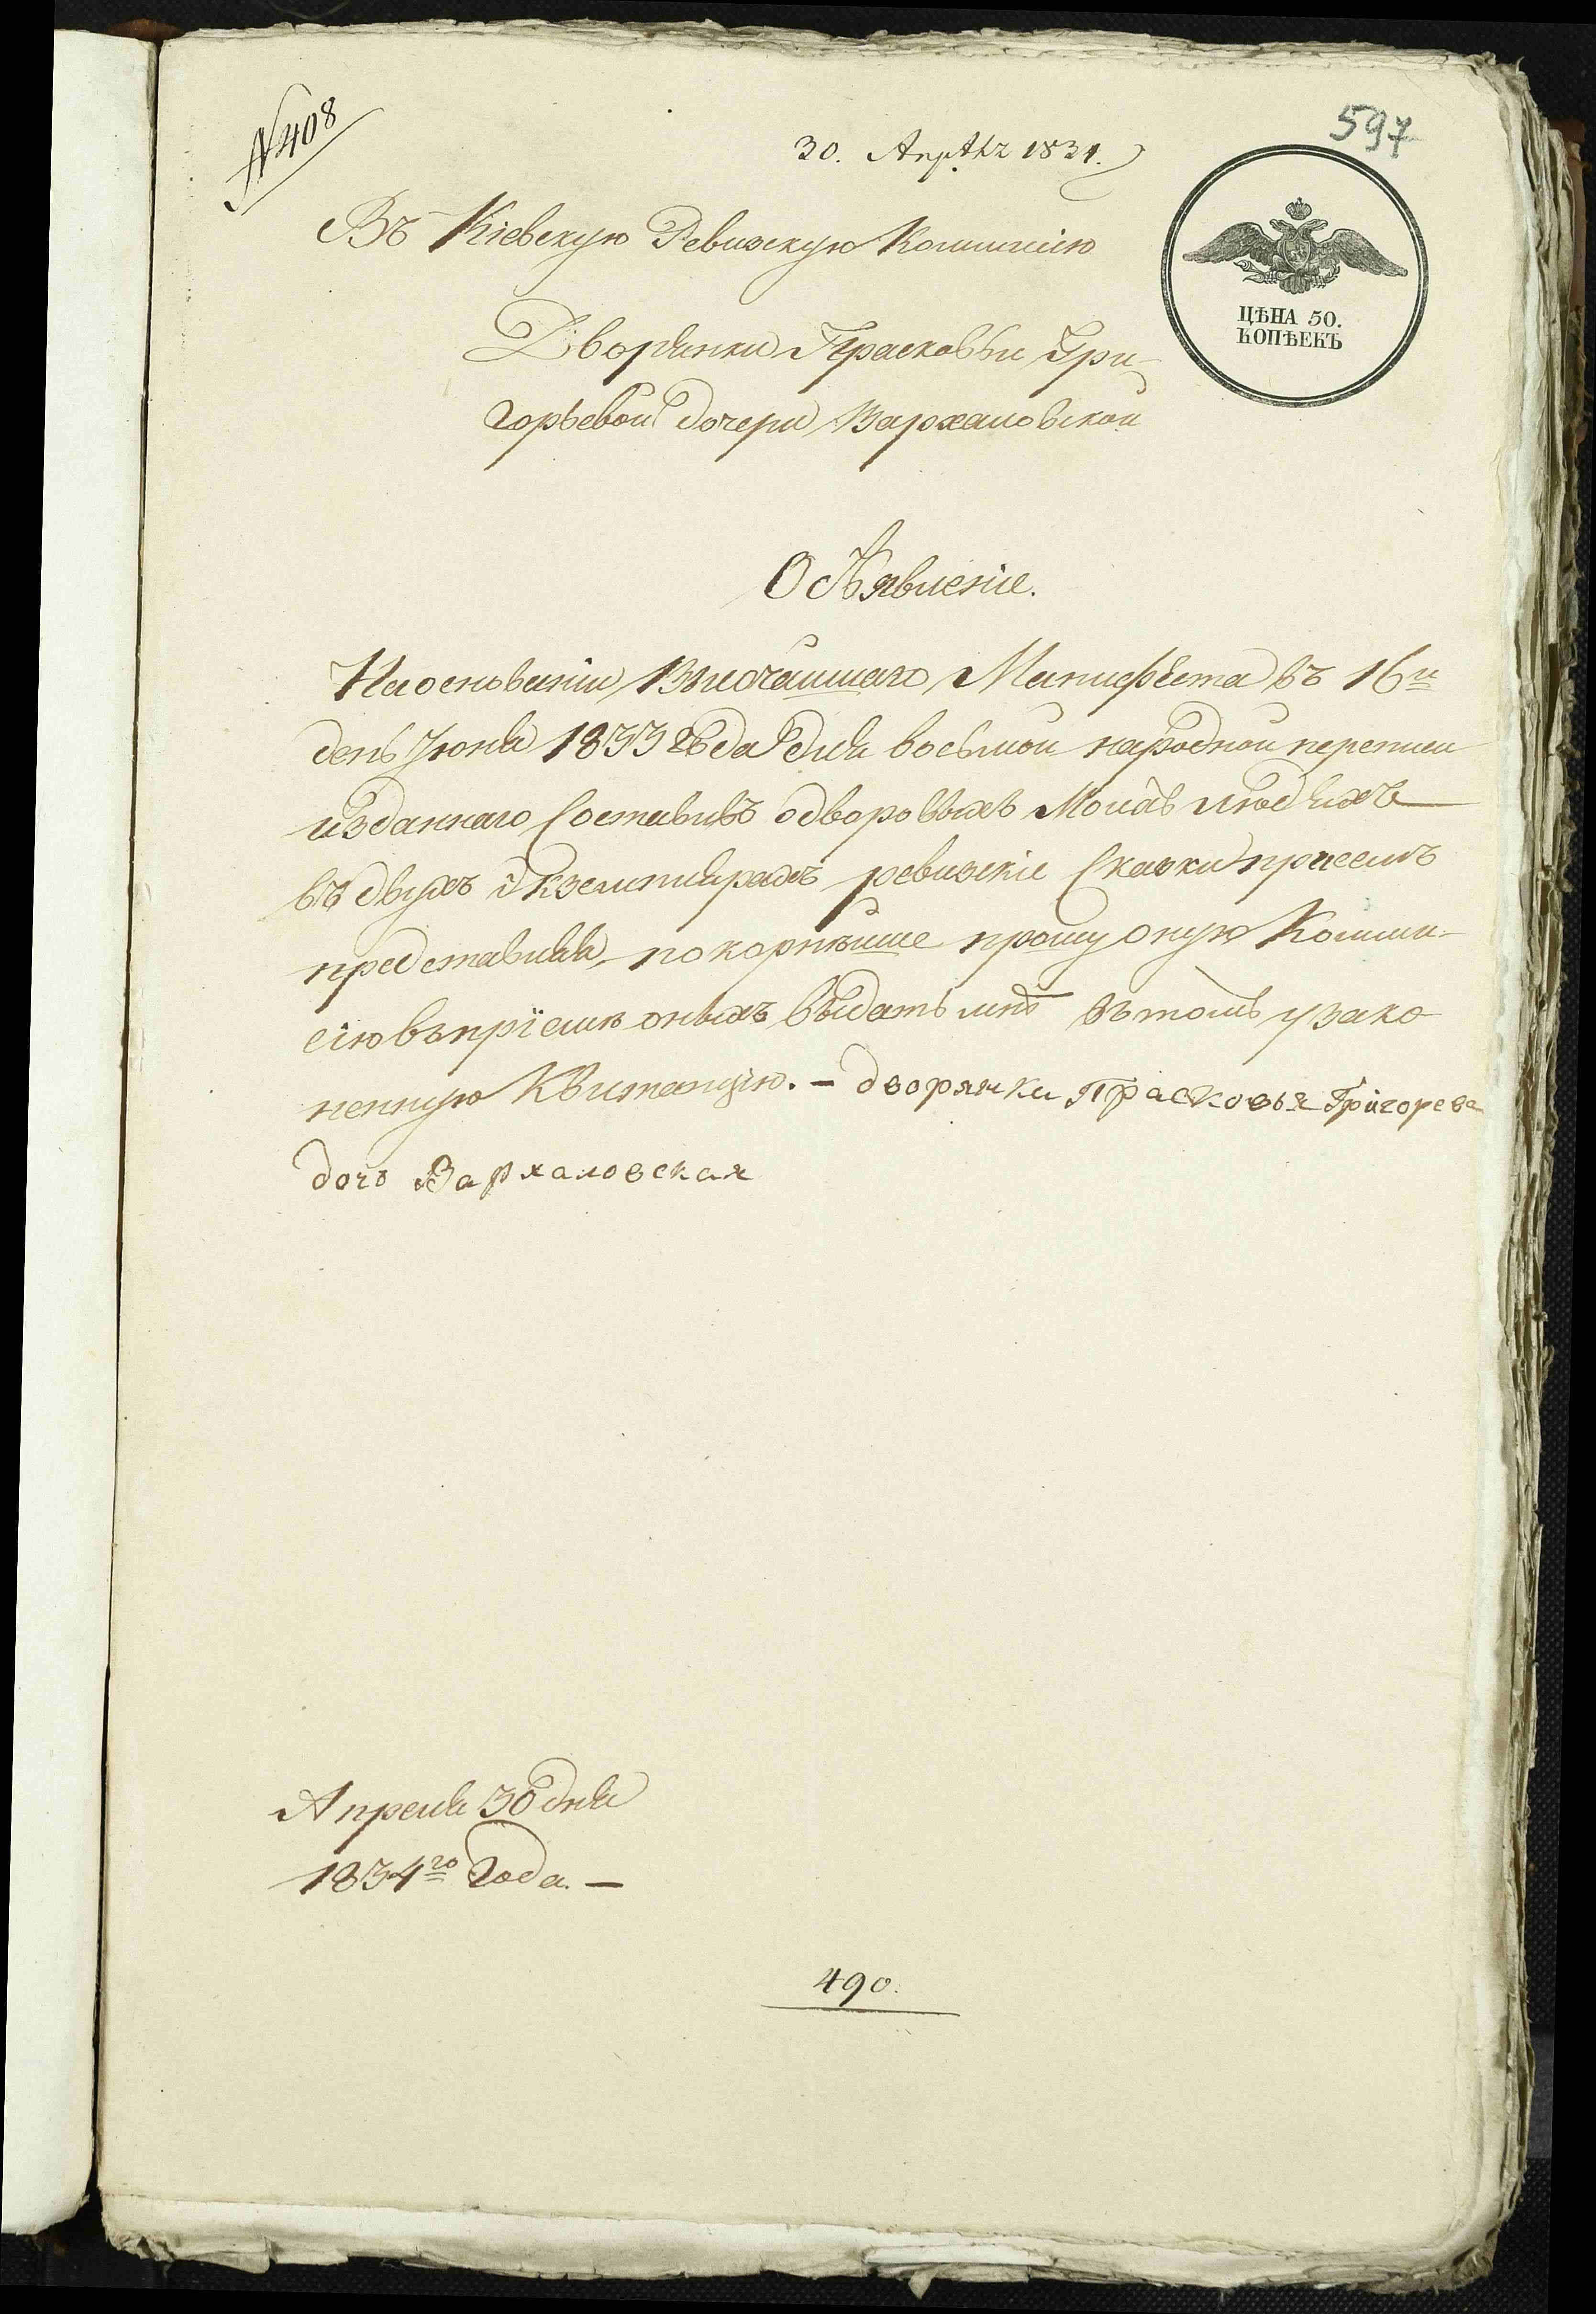 № 408
597
30. Апрѣля 1834.
Въ Кіевскую Ревизскую Коммисію
ЦѢНА 50.
КОПѢЕКЪ
Дворянки Прасковьи Гри-
горьевой дочери Вархаловской
Объявленіе.
На основаніи Высочайшаго Манифеста въ 16й
день Іюня 1833 года для восьмой народной переписи
изданнаго Составивъ одворовыхъ Моихъ людяхъ
въ двухъ экземплярахъ ревизскіе Сказки при семъ
представляя, покорнѣйше прошу оную Комми-
сію въ пріемѣ оныхъ выдать мнѣ въ томъ узако-
ненную Квитанцію. - дворянки Прасковья Григорева
дочь Вархаловская
Апреля 30 дня
1834го Года. -
490.